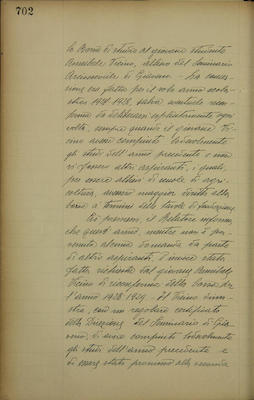 702
la Borsa di studio al giovane studente
Annibale Ticino, allievo del Seminario
Arcivescovile di Giaveno - La conces-
sione era fatta per il solo anno scola-
stico 1927-1928, salvo eventuale ricon-
ferma da deliberarsi esplicitamente ogni
volta, sempre quando il giovane
avesse compiuto lodevolmente
gli studi dell'anno precedente e non
vi fossero altri aspiranti, i quali,
per essere allievi di scuole di agri-
coltura, avessero maggior diritto alla
borsa a termini delle tavole di fondazione.
Ciò premesso, il Relatore informa
che quest'anno, mentre non è per-
venuta alcuna domanda da parte
di altri aspiranti, è invece stata
fatta richiesta dal giovane Annibale
Ticino di riconferma della borsa per
l'anno 1928-1929. Il Ticino dimo-
stra, con un regolare certificato
della Direzione del Seminario di Gia-
veno, di aver compiuto lodevolmente
gli studi dell'anno precedente e
di essere stato promosso alla